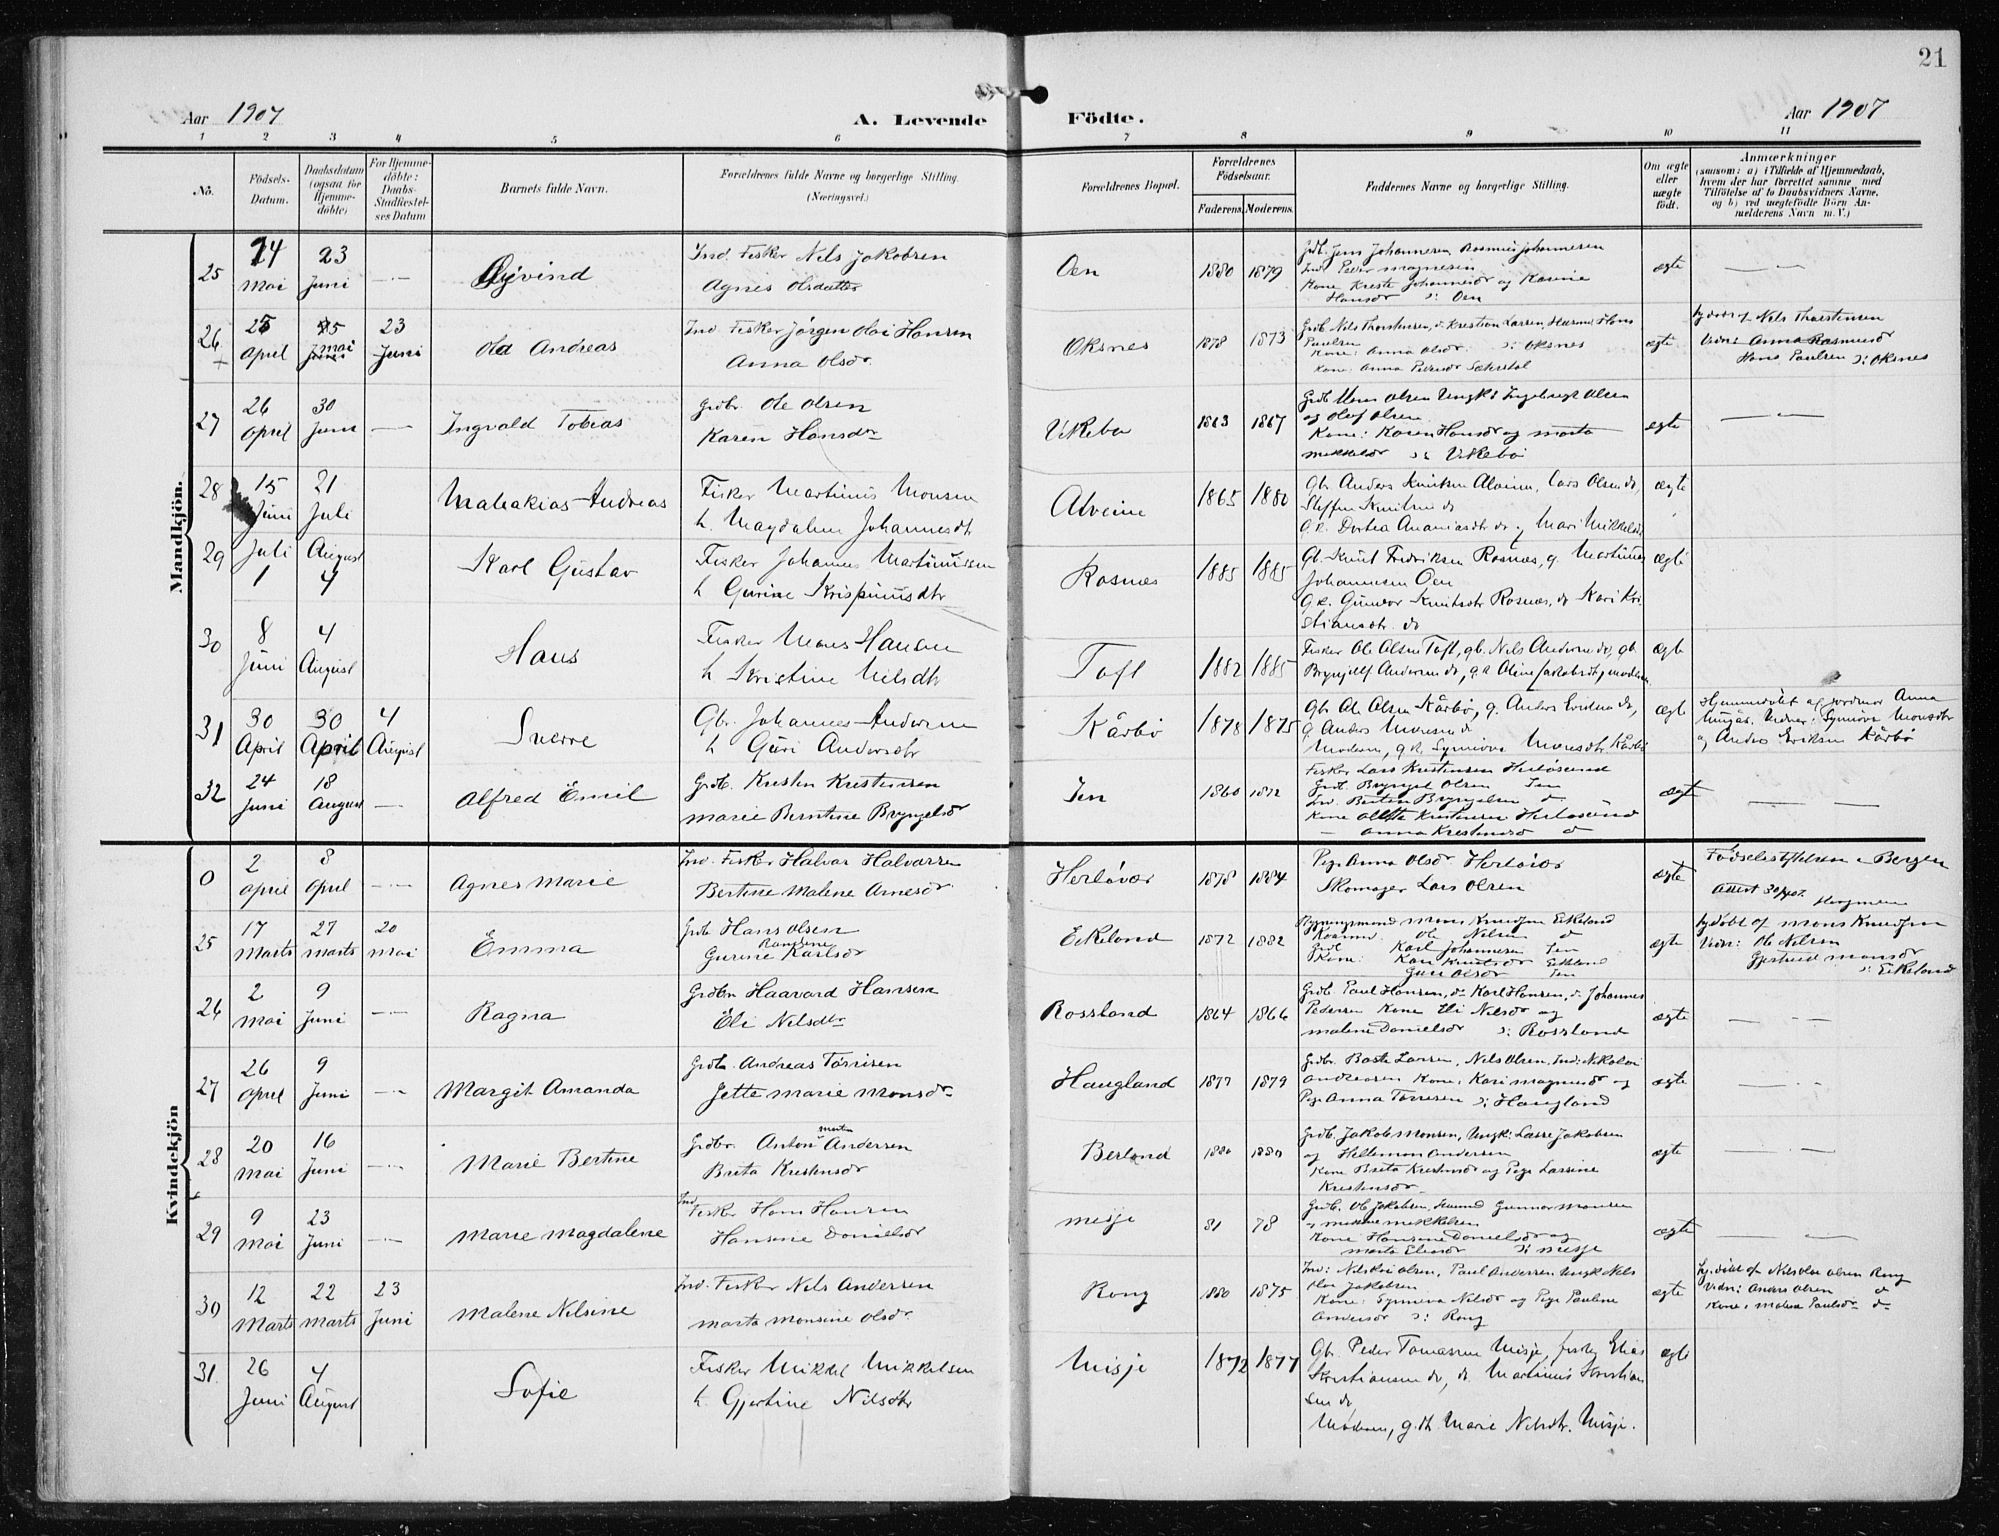 21
Aar 1907 A. Levende Födte. Aar 1907
1 2 3 4 5 6 7 8 9 10 11
No. Födsels-Datum. Daabsdatum (ogsaa for Hjemme-döbte) For Hjemme-döbte: Daabs-Stadfæstel-ses Datum Barnets fulde Navn. Forældrenes fulde Navne og borgerlige Stilling. (Næringsvei.) Forældrenes Bopæl. Forældrenes Födselsaar. Faderens. Moderens. Faddernes Navne og borgerlige Stilling. Om ægte eller uægte födt. Anmærkninger (saasom: a) i Tilfælde af Hjemmedaab, hvem der har forrettet samme med Tilföielse af to Daabsvidners Navne, og b) ved uægtefödte Börn An-melderens Navn m. V.)
Mandkjön.
25 14 Mai 23 Juni Øyvind
Ind. Fisker Nils Jakobsen
Agnes Olsdatter
Oen 1880 1879
Gdb. Jens Johannesen Rasmus Johannesen
Ind. Peder Magnesen
Kone Kreste Johannesdr og Karine
Hansdr ɔ: Oen
ægte
26 25 April 15 Mai 23 Juni Ola Andreas
Ind Fisker Jørgen Olai Hansen
Anna Olsdr.
Oksnes 1878 1873
Grdb Nils Thorstensen, d. Kristian Larsen, Hans
Paulsen
Kone: Anna Olsdr. ɔ: Oksnes
Kone: Anna Pedersdr Sætredal
ægte
hj.døbt af Nils Thorstensen
Vidn: Anna Rasmusdr
Hans Paulsen ɔ: Oksnes
27 26 April 30 Juni Ingvald Tobias
Grdbr. Ole Olsen
Karen Hansdr
Vikebø 1863 1867
Grdb Mons Olsen Ungk: Ingebrigt Olsen
og Olaf Olsen
Kone: Karen Hansdr og Marta
Mikkelsdr ɔ: Vikebø
ægte
28 15 Juni 21 Juli Malakias Andreas
Fisker Martinus Monsen
h. Magdalene Johannesdtr
Alveim 1865 1880
Gb. Anders Knutsen Alveim, Lars Olsen do,
Steffen Knutsen do
G.k. Dortea Ananiasdtr do, Mari Mikkelsdr
ægte
29 Juli 1 August 4 Karl Gustav
Fisker Johannes Martinussen
h Gurine Krispinusdtr
Rosnæs 1885 1885
Gb. Knut Fredriksen Rosnæs, g. Martinus
Johannesen Oen
G.k. Gunvor Knutsdtr Rosnæs, do Kari Kri-
stiansdtr. do
ægte
30 8 Juni 4 August Hans
Fisker Mons Hansen
h Kristine Nilsdtr
Toft 1882 1885
Fisker Ole Olsen Toft, gb. Nils Andersen do, gb.
Brynjulf Andersen do, g.k Oline Jakobsdtr, moderen
ægte
31 30 April 30 April 4 August Sverre
Gbr. Johannes Andersen
h Guri Andersdtr
Kårbø 1878 1875
Gbr Ole Olsen Kårbø, g. Anders do,
g Anders Monsen do
Moderen, g.k. Synnøva Monsdtr. Kårbø
ægte
Hjemmedøbt af jordmor Anna
Vidner: Synnøva Monsdtr
og Anders Eriksen Kårbø
32 24 Juni 18 August Alfred Emil
Grdb. Kresten Krestensen
Marie Berntine Bryngelsdr
Ien 1860 1872
Fisker Lars Krestensen Herløsund
Grdb Bryngel Olsen Ien
Ind. Berten Bryngelsen d
Kone Krestensen Herløsund
Anna Krestensdr d
ægte
Kvindekjön
0 2 April 8 April Agnes Marie
Ind. Fisker Halvar Halvarsen
Bertine Malene Arnesdr.
Herløvær 1878 1884
Pige Anna Olsdr Herløvær
Skomager Lars Olsen
ægte
Fødselsstiftelsen i Bergen
Attest 30/4 07.
25 17 Marts 27 Marts 20 Mai Emma
Grdb Hans Olsen
Gurine Karlsdr
Eikeland 1872 1882
Bygningsmand Mons Knudsen Eikeland
Ole Nilsen d
Grdb Karl Johannesen Ien
Kone: Kari Knutsdr Eikeland
Guri Olsdr Ien
ægte
hj.døbt af Mons Knudsen
Vidn: Ole Nilsen
Gjertrud Monsdr
ɔ: Eikeland
26 2 Mai 9 Juni Ragna
Grdbr Haavard Hansen
Eli Nilsdtr
Rossland 1864 1866
Grdb. Paul Hansen, d Karl Hansen, d. Johannes
Pedersen Kone Eli Nilsdr og
Malene Danielsdr ɔ: Rossland
ægte
27 26 April 9 Juni Margit Amanda
Grdb. Andreas Tørrisen
Jette Marie Monsdr
Haugland 1877 1879
Grdbr. Baste Larsen, Nils Olsen, Ind: Nikolai
Andreasen Kone: Kari Magnusdr og
Pige Anna Torresen ɔ: Haugland
ægte
28 20 Mai 16 Juni Marie Bertine
Grdbr. Anton Martin Andersen
Brita Krestensdr
Berland 1880 1880
Grdb. Jakob Monsen, Ungk: Lasse Jakobsen
og Hellemon Andersen
Kone Brita Krestensdr og Pige Larsine
Krestensdr.
ægte
29 9 Mai 23 Juni Marie Magdalene
Ind Fisker Hans Hansen
Hansine Danielsdr
Misje 81 78
Grdb. Ole Jakobsen, Gunnar Monsen
Mikkelsen
Kone Hansine Danielsdr og
Marta Eliasdr ɔ: Misje
ægte
30 12 Marts 22 Marts 23 Juni Malene Nilsine
Ind. Fisker Nils Andersen
Marta Monsine Olsdr
Rong 1880 1875
Ind: Nils Olai Olsen, Paul Andersen Ungk Nils
Olai Jakobsen
Kone: Synneva Nilsdr og Pige Pauline
Andersdr ɔ: Rong
ægte
hj. døbt af Nils Olai Olsen Rong
Vidn: Anders Olsen d
Kone: Malena Paulsdr d
31. 26 Juni 4 August Sofie
Fisker Mikkel Mikkelsen
h. Gjertine Nilsdtr
Misje 1872 1877
Gbr. Peder Tomassen Misje, fisker Elias
Kristiansen do, do. Martinus Kristian
sen do,
Moderen, g.k. Marie Nilsdtr. Misje.
ægte